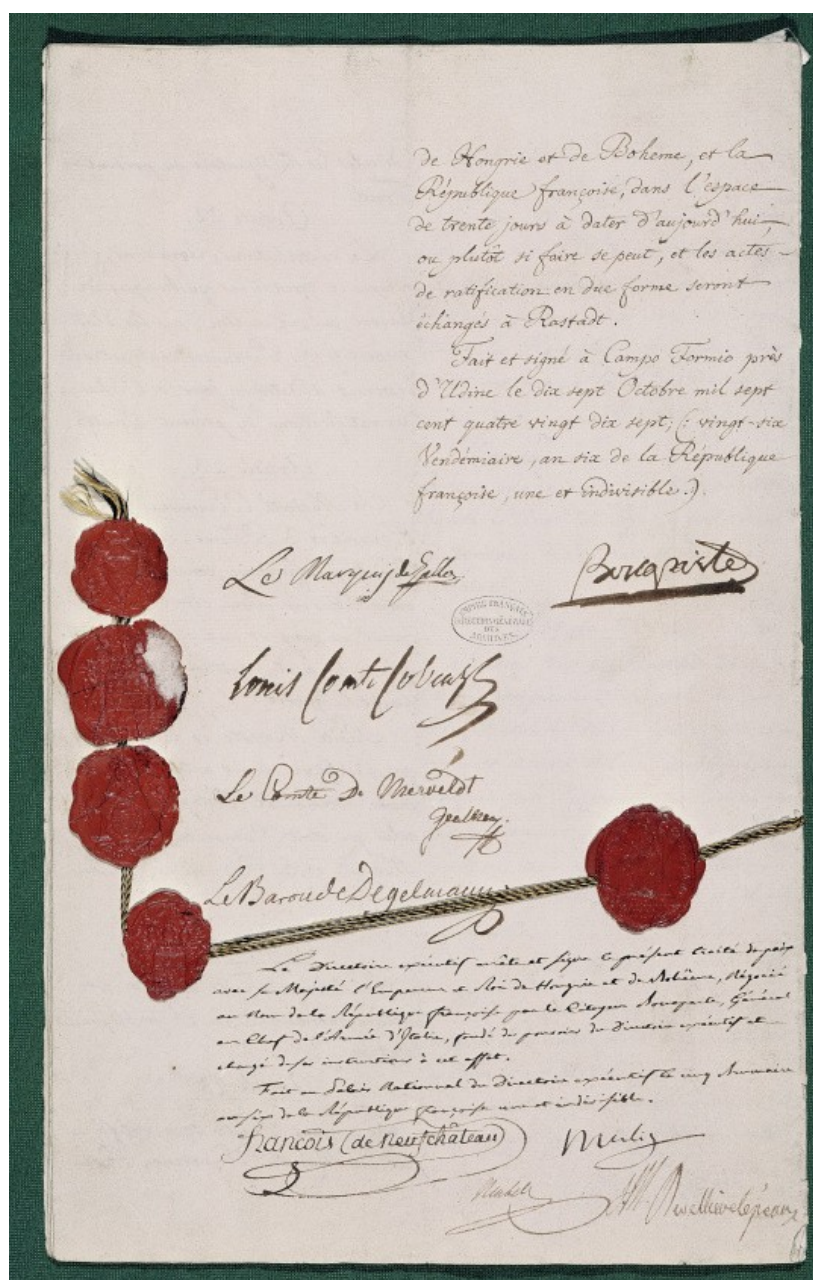 de Hongrie et de Boheme, et la
République françoise, dans l'espace
de trente jours à dater d'aujourd'hui,
ou plutôt si faire se peut, et les actes
de ratification en due forme seront
échangés à Rastadt.
Fait et signé à Campo Formio près
d'Udine le dix sept Octobre mil sept
cent quatre vingt dix sept; (: vingt-six
Vendémiaire, an six de la République
françoise, une et indivisible.)
Le Marquis de Gallo
Bonaparte
EMPIRE FRANÇAIS
DIRECTION GÉNÉRALE
DES
ARCHIVES
Louis Comte Cobenzl
Le Comte De Merveldt
Le Baron de Degelmann
Le Directoire exécutif arrête et signe le présent traité de paix
avec sa Majesté l'Empereur et Roi de Hongrie et de Bohême, négocié
au nom de la République françoise par le Citoyen Bonaparte, Général
en Chef de l'Armée d'Italie, fondé de pouvoirs du Directoire exécutif et
chargé de ses instructions à cet effet.
Fait au Palais National du Directoire exécutif le cinq Brumaire
an six de la République françoise une et indivisible.
François (de Neufchâteau)
Merlin